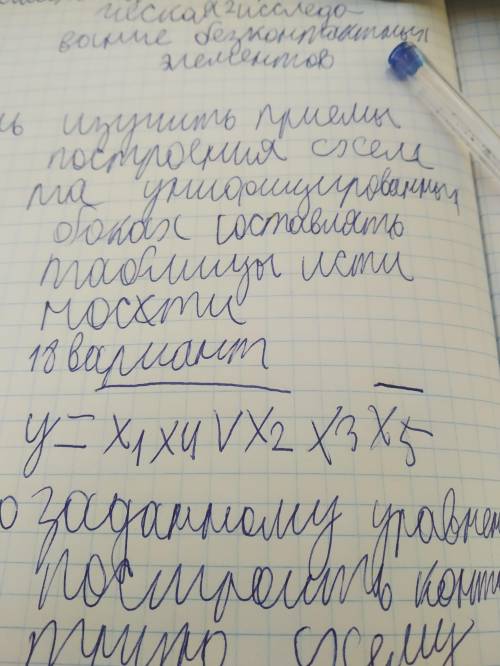 ческая исследо-
вание безконтактных
элементов
изучить приемы
построения схем
на унифицированных
блоках составлять
таблицы исти
носхти
18 вариант
y = x1 x4 V x2 x3 x5
заданному уравнен
построить конт
схему